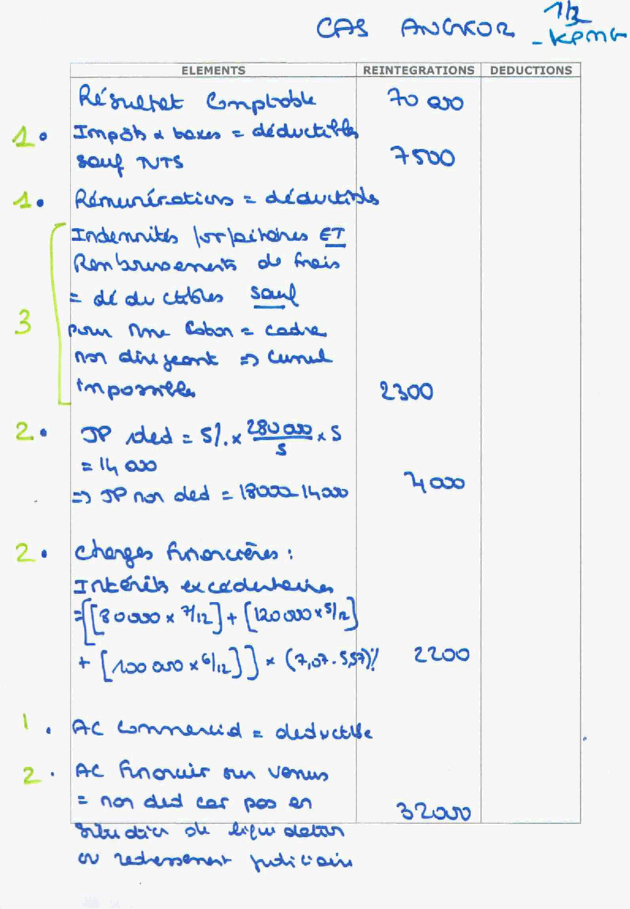 CAS ANGKOR 1/2
- KPMG
ELEMENTS REINTEGRATIONS DEDUCTIONS
Résultat Comptable 70 000
1. Impôts & taxes = déductibles
sauf TVTS 7500
1. Rémunérations = déductibles
Indemnités forfaitaires ET
Remboursements de frais
= déductibles sauf
3 pour Mme Cobon = cadre
non dirigeant => cumul
impossible 2300
2. JP ded = 5% x 280 000/5 x 5
= 14 000
=> JP non ded = 18000-14000 4000
2. Charges financières :
Intérêts excédentaires
=[[80 000 x 7/12] + [120 000 x 5/12]
+ [100 000 x 6/12]] x (7,07-5,57)% 2200
1. AC commercial = deductible
2. AC financier sur Venus
= non ded car pas en 32000
situation de liquidation
ou redressement judiciaire